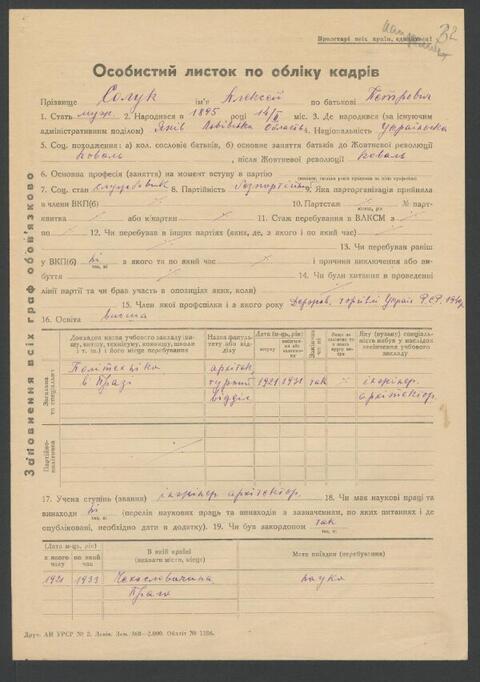 32
Пролетарі всіх країн, єднайтеся!
Особистий листок по обліку кадрів
Прізвище Солук ім'я Алексей по батькові Петрович
1. Стать муж. 2. Народився в 1895 році 14/ міс. 3. Де народився (за існуючим
адміністративним поділом) Янів Львівська Область. Національність Українська
5. Соц. походження: а) кол. сословіє батьків, б) основне заняття батьків до Жовтневої революції
коваль , після Жовтневої революції коваль
6. Основна професія (заняття) на момент вступу в партію
7. Соц. стан службовик 8. Партійність безпартійний 9. Яка парторганізація прийняла
в члени ВКП(б) 10. Партстаж № парт-
квитка або к/картки 11. Стаж перебування в ВЛКСМ з
по 12. Чи перебував в інших партіях (яких, де, з якого і по який час)
13. Чи перебував раніш
у ВКП(б) ні з якого та по який час і причини виключення або ви-
буття 14. Чи були хитання в проведенні
лінії партії та чи брав участь в опозиціях яких, коли)
15. Член якої профспілки і з якого року Держав. торгівлі Украї РСР. 1940
16. Освіта висша
Заповнення всіх граф обов'язково
Загальна та спеціальна
Докладна назва учбового закладу (вищу, школи і т. ін.) і його місце перебування
Назва факультету або відділу
Дата (м-ць, рік)
вступу
Яку (вузьку) спеціальність набув у наслідок закінчення учбового закладу
Політехніка в Празі
архітектурний відділ
1921 1931 так інжінер. архітектор.
Партійно-політична
17. Учена ступінь (звання) інжінер архітектор. 18. Чи має наукові праці та
винаходи ні (перелік наукових праць та винаходів з зазначенням, по яких питаннях і де
опубліковані, необхідно дати в додатку). 19. Чи був закордоном так
Дата (м-ць, рік)
з якого часу
по який час
В якій країні (вказати місто, місце)
Мета поїздки (перебування)
1921 1933 Чехословаччина наука
Прага
Друк. АН УРСР № 2. Львів. Зам. 368—2.000. Обліт № 1156.